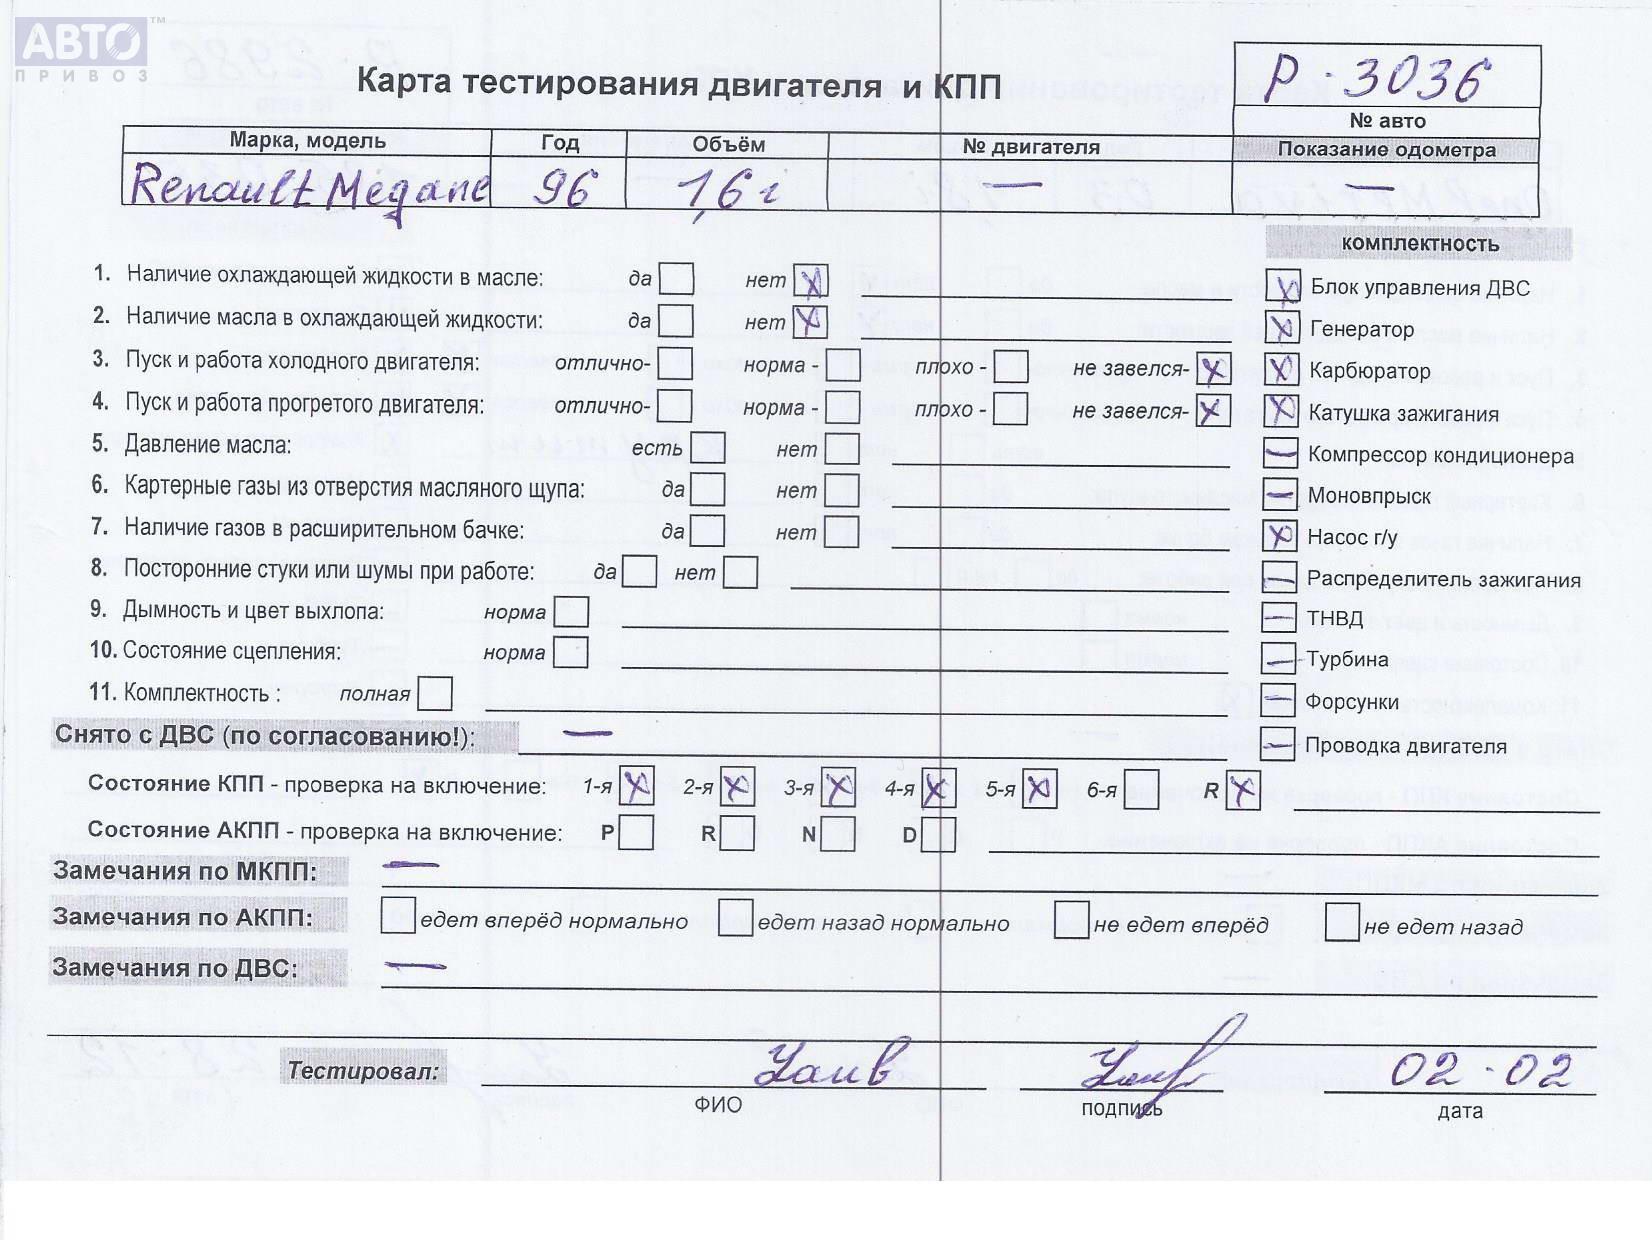 АВТО™
ПРИВОЗ
Карта тестирования двигателя и КПП
Р-3036
№ авто
Марка, модель Год Объём № двигателя Показание одометра
Renault Megane 96 1,6i — —
комплектность
1. Наличие охлаждающей жидкости в масле: да нет X
2. Наличие масла в охлаждающей жидкости: да нет X
3. Пуск и работа холодного двигателя: отлично- норма - плохо - не завелся- X
4. Пуск и работа прогретого двигателя: отлично- норма - плохо - не завелся- X
5. Давление масла: есть нет
6. Картерные газы из отверстия масляного щупа: да нет
7. Наличие газов в расширительном бачке: да нет
8. Посторонние стуки или шумы при работе: да нет
9. Дымность и цвет выхлопа: норма
10. Состояние сцепления: норма
11. Комплектность : полная
X Блок управления ДВС
X Генератор
X Карбюратор
X Катушка зажигания
— Компрессор кондиционера
— Моновпрыск
X Насос г/у
— Распределитель зажигания
— ТНВД
— Турбина
— Форсунки
— Проводка двигателя
Снято с ДВС (по согласованию!): —
Состояние КПП - проверка на включение: 1-я X 2-я X 3-я X 4-я X 5-я X 6-я R X
Состояние АКПП - проверка на включение: P R N D
Замечания по МКПП: —
Замечания по АКПП: едет вперёд нормально едет назад нормально не едет вперёд не едет назад
Замечания по ДВС: —
Тестировал: 02.02
ФИО подпись дата